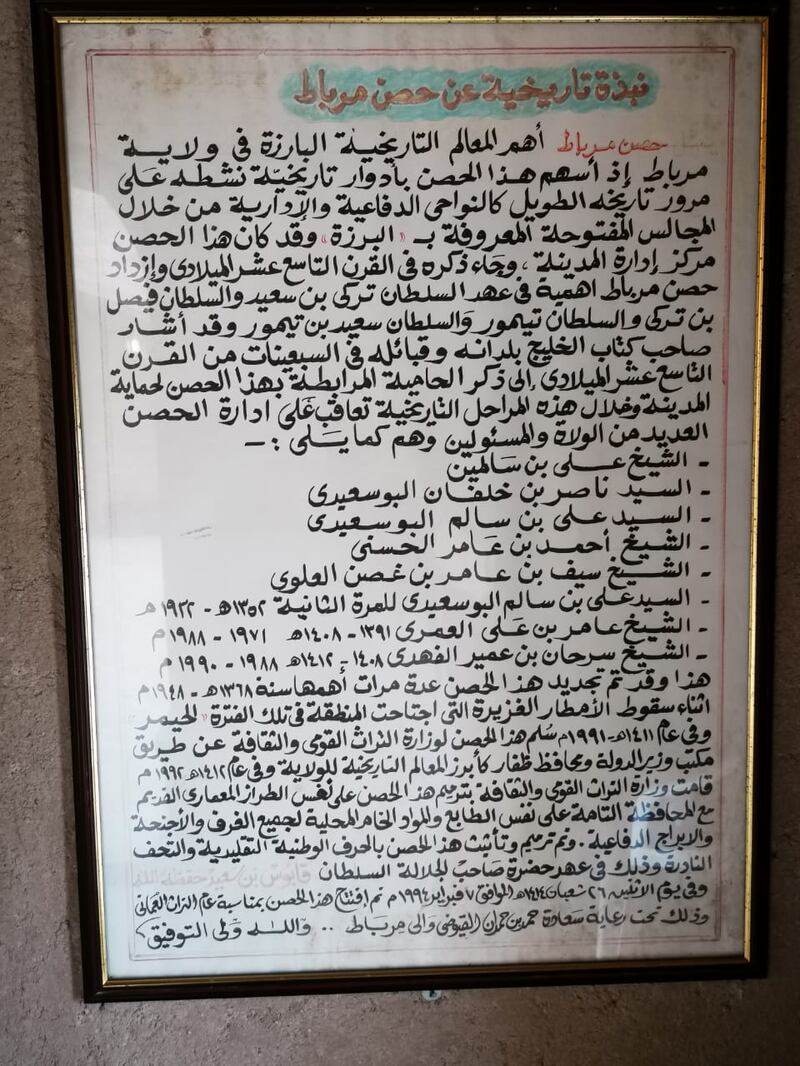 نبذة تاريخية عن حصن مرباط
حصن مرباط أهم المعالم التاريخية البارزة في ولاية
مرباط إذ أسهم هذا الحصن بأدوار تاريخيّة نشطه على
مرور تاريخه الطويل كالنواحي الدفاعية والإدارية من خلال
المجالس المفتوحة المعروفة بـ "البرزة" وقد كان هذا الحصن
مركز إدارة المدينة، وجاء ذكره في القرن التاسع عشر الميلادي وإزداد
حصن مرباط اهمية في عهد السلطان تركي بن سعيد والسلطان فيصل
بن تركي والسلطان تيمور والسلطان سعيد بن تيمور وقد أشار
صاحب كتاب الخليج بلدانه وقبائله في السبعينات من القرن
التاسع عشر الميلادي إلى ذكر الحامية المرابطة بهذا الحصن لحماية
المدينة وخلال هذه المراحل التاريخية تعاقب على ادارة الحصن
العديد من الولاة والمسئولين وهم كما يلي :-
- الشيخ علي بن سالمين
- السيد ناصر بن خلفان البوسعيدي
- السيد علي بن سالم البوسعيدي
- الشيخ أحمد بن عامر الحسني
- الشيخ سيف بن عامر بن غصن العلوي
- السيد علي بن سالم البوسعيدي للمرة الثانية ١٣٥٢هـ - ١٩٢٢م
- الشيخ عامر بن علي العمري ١٣٩١ - ١٤٠٨هـ ١٩٧١ - ١٩٨٨م
- الشيخ سرحان بن عمير الفهدي ١٤٠٨ - ١٤١٢هـ ١٩٨٨ - ١٩٩٠م
هذا وقد تم تجديد هذا الحصن عدة مرات أهمها سنة ١٣٦٨هـ - ١٩٤٨م
اثناء سقوط الأمطار الغزيرة التي اجتاحت المنطقة في تلك الفترة "لحيمر"
وفي عام ١٤١١هـ - ١٩٩١م سُلم هذا الحصن لوزارة التراث القومي والثقافة عن طريق
مكتب وزير الدولة ومحافظ ظفار كأبرز المعالم التاريخية للولاية وفي عام ١٤١٢هـ ١٩٩٢م
قامت وزارة التراث القومي والثقافة بترميم هذا الحصن على نفس الطراز المعماري القديم
مع المحافظة التامة على نفس الطابع والمواد الخام المحلية لجميع الغرف والأجنحة
والابراج الدفاعية. وتم ترميم وتأثيث هذا الحصن بالحرف الوطنية التقليدية والتحف
النادرة وذلك في عهد حضرة صاحب لجلالة السلطان قابوس بن سعيد حفظه الله
وفي يوم الاثنين ٢٦ شعبان ١٤١٤هـ الموافق ٧ فبراير ١٩٩٤م تم إفتتاح هذا الحصن بمناسبة عام التراث العماني
وذلك تحت رعاية سعادة حمد بن حمدان الفيوضي والي مرباط .. والله ولي التوفيق